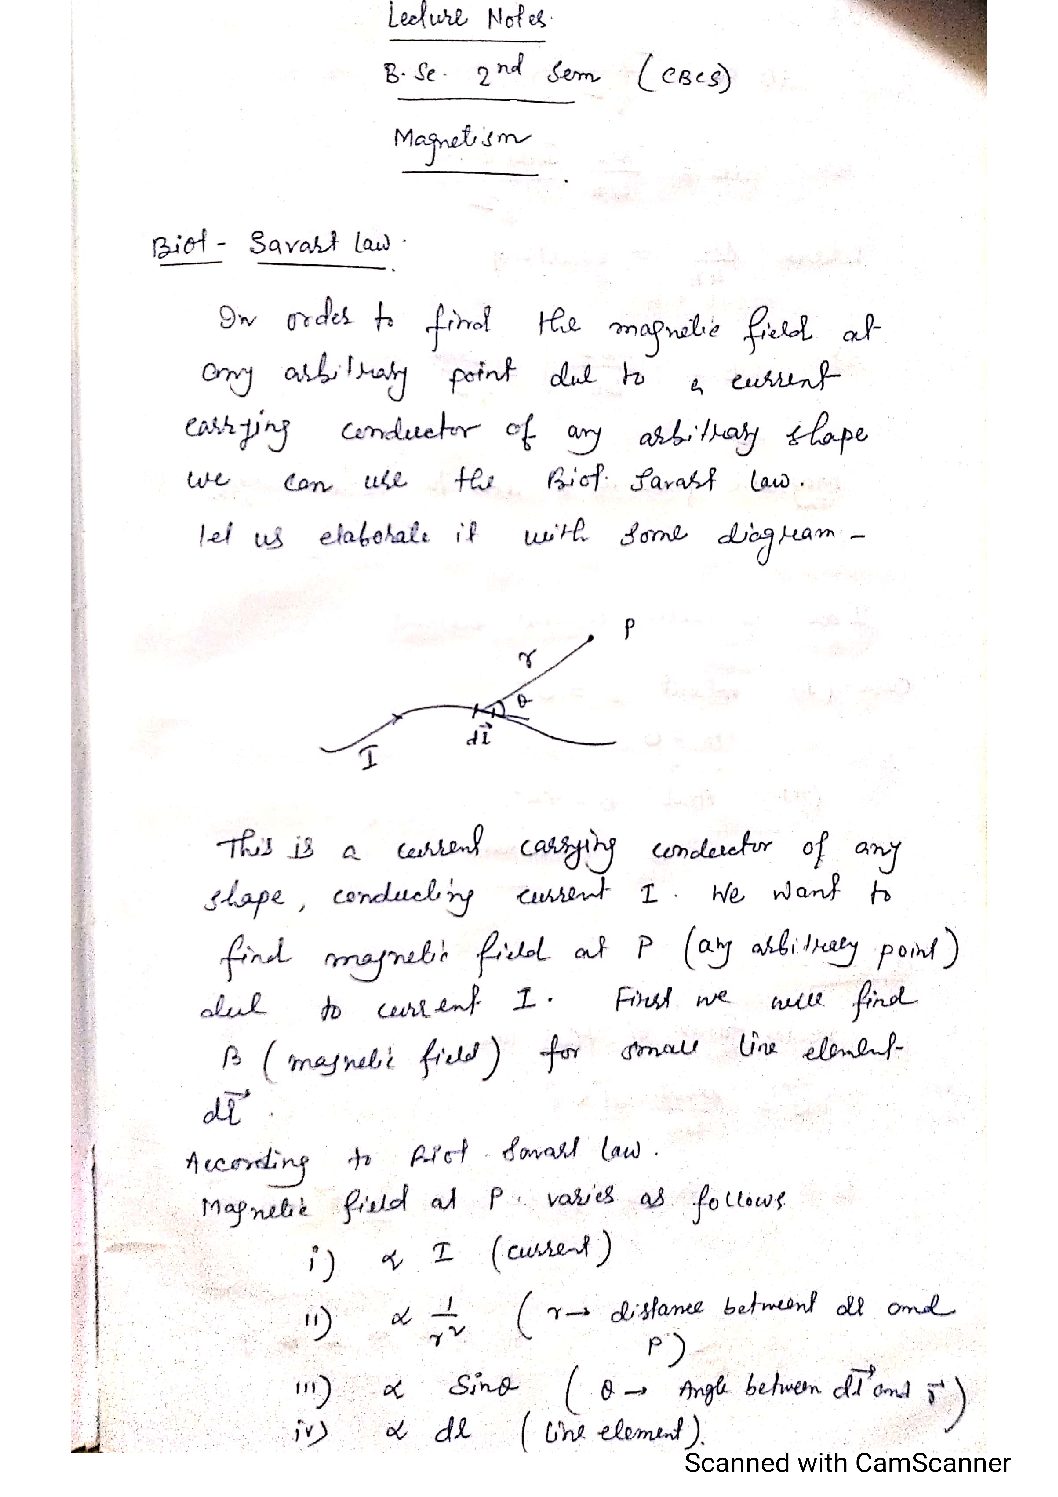 Lecture Notes.
B.Sc. 2nd Sem (CBCS)
Magnetism
Biot - Savart law.
In order to find the magnetic field at
any arbitrary point due to a current
carrying conductor of any arbitrary shape
we can use the Biot. Savart law.
let us elaborate it with some diagram -
P
r
θ
dl⃗
I
This is a current carrying conductor of any
shape, conducting current I. We want to
find magnetic field at P (any arbitrary point)
due to current I. First we will find
B (magnetic field) for small line element
dl⃗.
According to Biot Savart law.
Magnetic field at P. varies as follows
i) ∝ I (current)
ii) ∝ 1/r² (r→ distance betweent dl and
P)
iii) ∝ Sinθ (θ→ Angle between dl⃗ and r⃗)
iv) ∝ dl (line element).
Scanned with CamScanner